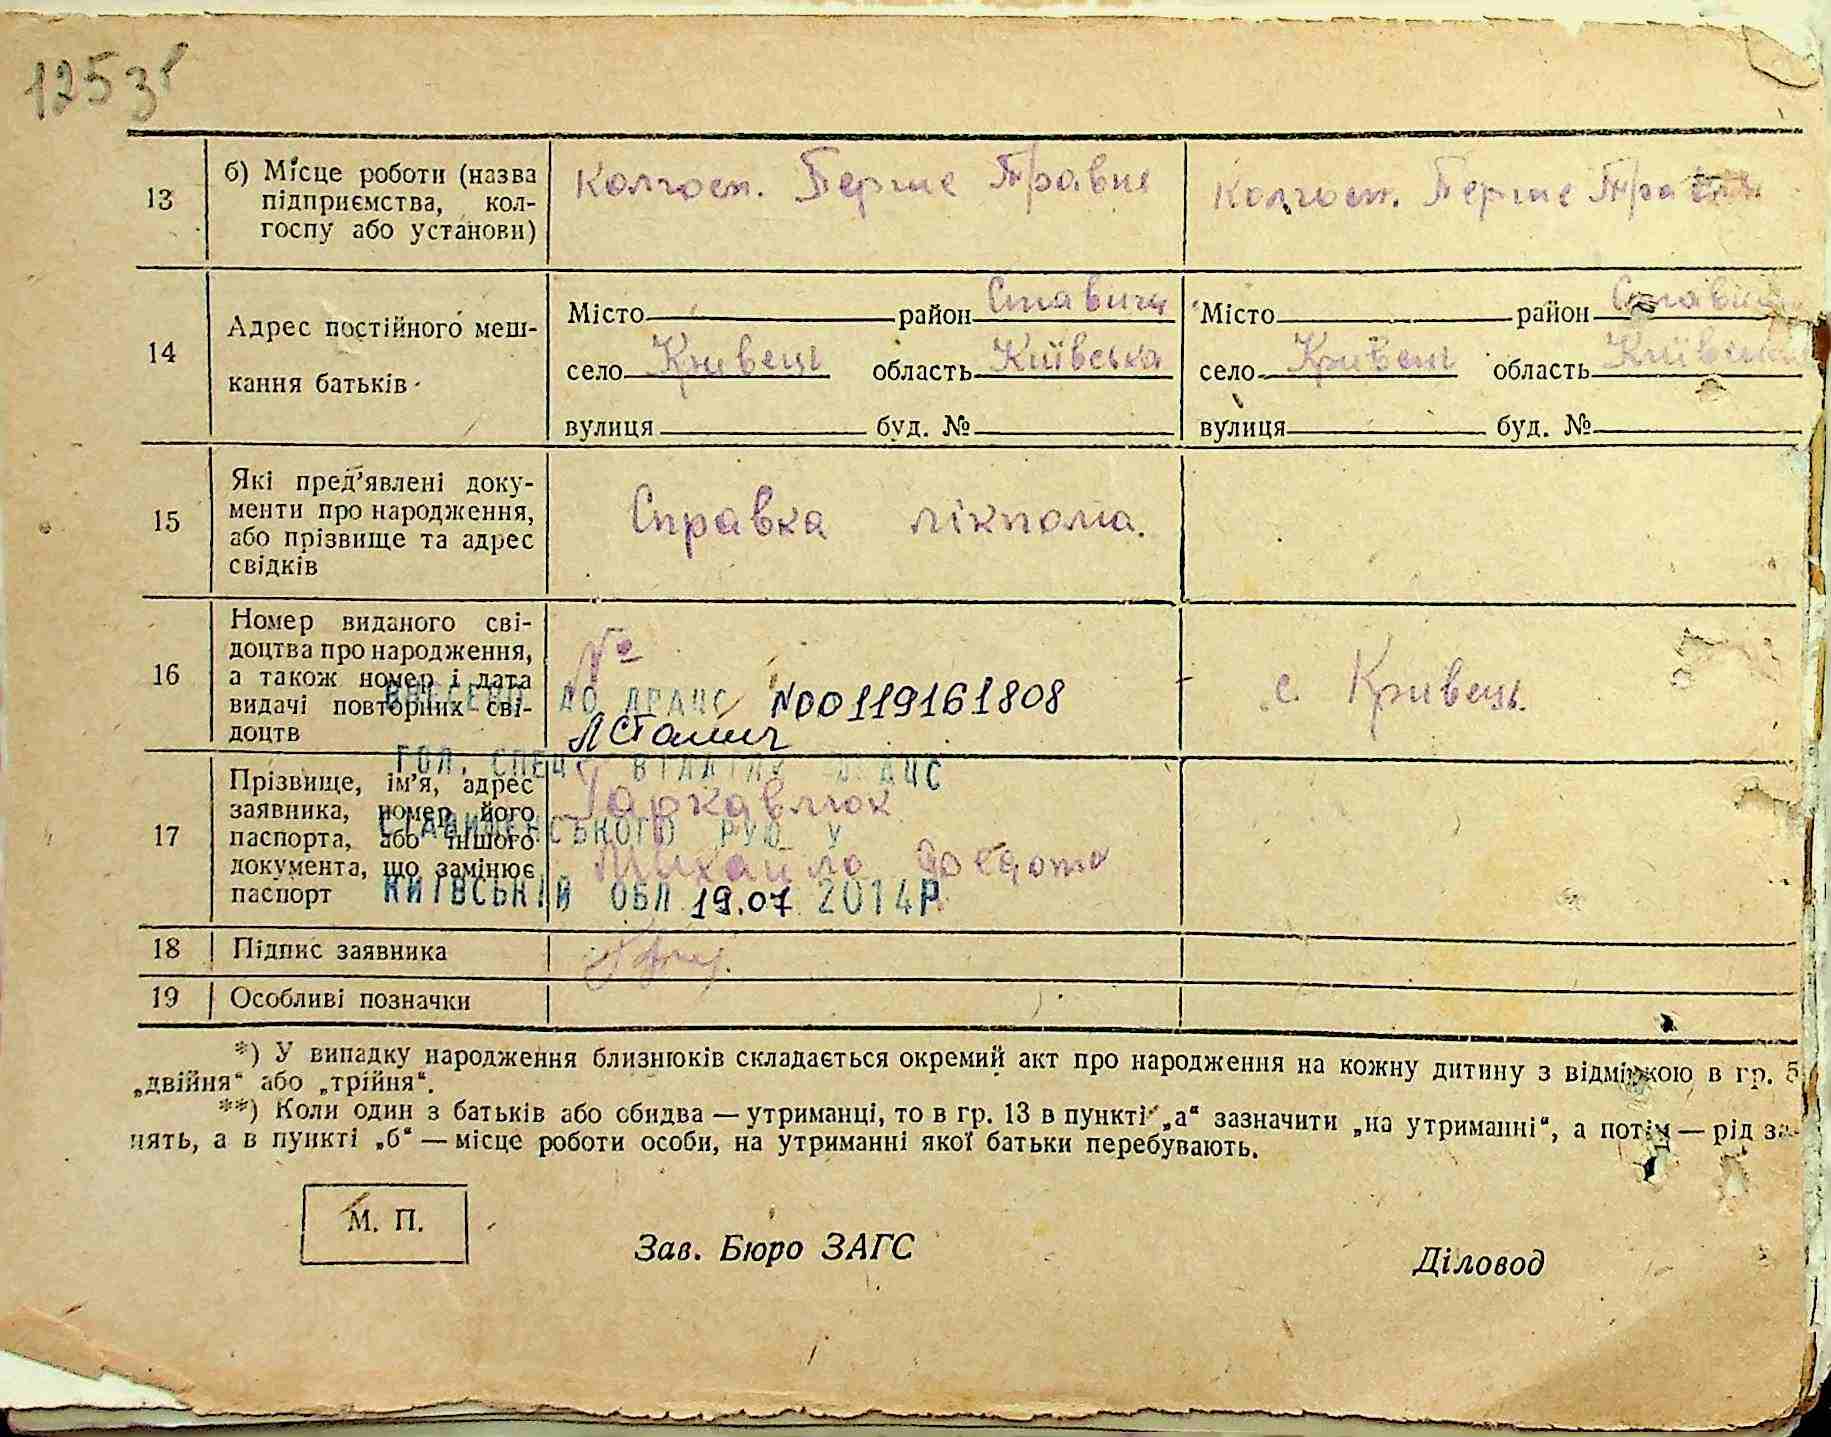 125 зв
13
б) Місце роботи (назва
підприємства, кол-
госпу або установи)
Колгосп. Перше Травне
Колгосп. Перше Тра
14
Адрес постійного меш-
кання батьків
Місто район Ставищ
село Кривець область Київська
вулиця буд. №
Місто район Ставищ
село Кривець область Київська
вулиця буд. №
15
Які пред'явлені доку-
менти про народження,
або прізвище та адрес
свідків
Справка лікпома.
16
Номер виданого сві-
доцтва про народження,
а також номер і дата
видачі повторних сві-
доцтв
№
ВНЕСЕНО ДО ДРАЦС N00119161808
с. Кривець.
ГОЛ. СПЕЦ. ВІДДІЛУ ДРАЦС
СТАВИЩЕНСЬКОГО РУЮ У
КИЇВСЬКІЙ ОБЛ 19.07 2014Р
17
Прізвище, ім'я, адрес
заявника, номер його
паспорта, або іншого
документа, що замінює
паспорт
Гаркавлюк
Михайло
18
Підпис заявника
19
Особливі позначки
*) У випадку народження близнюків складається окремий акт про народження на кожну дитину з відміткою в гр. 5
„двійня“ або „трійня“.
**) Коли один з батьків або обидва — утриманці, то в гр. 13 в пункті „а“ зазначити „на утриманні“, а потім — рід за-
нять, а в пункті „б“ — місце роботи особи, на утриманні якої батьки перебувають.
М. П.
Зав. Бюро ЗАГС
Діловод